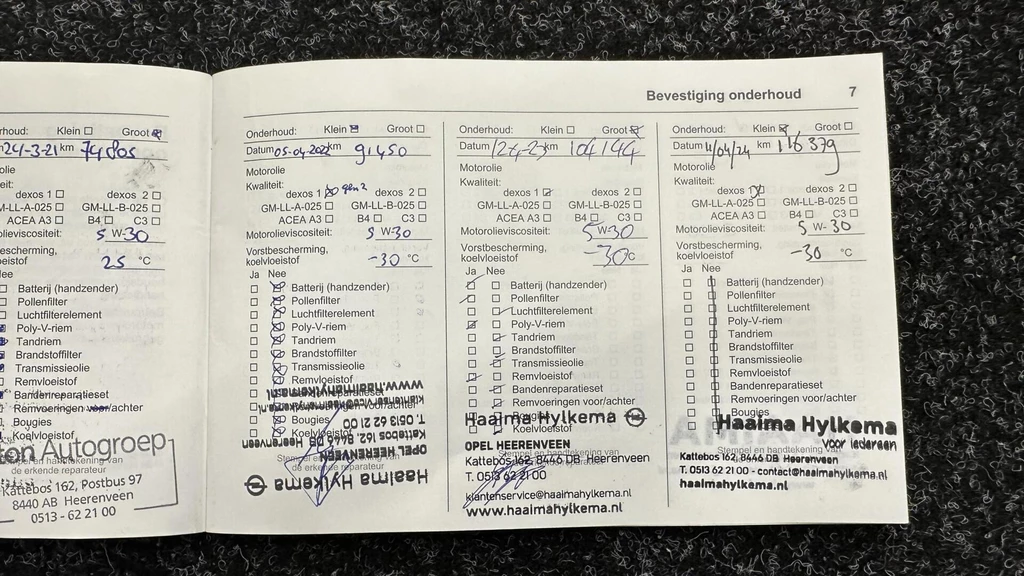 Bevestiging onderhoud 7
rhoud: Klein Groot
24-3-21 km 74805
olie
eit:
dexos 1 dexos 2
GM-LL-A-025 GM-LL-B-025
ACEA A3 B4 C3
rolieviscositeit: 5W-30
escherming,
oeistof 25 °C
Nee
Batterij (handzender)
Pollenfilter
Luchtfilterelement
Poly-V-riem
Tandriem
Brandstoffilter
Transmissieolie
Remvloeistof
Bandenreparatieset
Remvoeringen voor/achter
Bougies
Koelvloeistof
ton Autogroep
Stempel en handtekening van
de erkende reparateur
Kattebos 162, Postbus 97
8440 AB Heerenveen
0513 - 62 21 00
Onderhoud: Klein Groot
Datum 05-04-2022 km 91450
Motorolie
Kwaliteit:
dexos 1 gen2 dexos 2
GM-LL-A-025 GM-LL-B-025
ACEA A3 B4 C3
Motorolieviscositeit: 5W-30
Vorstbescherming,
koelvloeistof -30 °C
Ja Nee
Batterij (handzender)
Pollenfilter
Luchtfilterelement
Poly-V-riem
Tandriem
Brandstoffilter
Transmissieolie
Remvloeistof
Bandenreparatieset
Remvoeringen voor/achter
Bougies
Koelvloeistof
Stempel en handtekening van
de erkende reparateur
Haaima Hylkema
OPEL HEERENVEEN
Kattebos 162, 8446 DB Heerenveen
T. 0513 62 21 00
klantenservice@haaimahylkema.nl
www.haaimahylkema.nl
Onderhoud: Klein Groot
Datum km 104144
Motorolie
Kwaliteit:
dexos 1 dexos 2
GM-LL-A-025 GM-LL-B-025
ACEA A3 B4 C3
Motorolieviscositeit: 5W-30
Vorstbescherming,
koelvloeistof -30 °C
Ja Nee
Batterij (handzender)
Pollenfilter
Luchtfilterelement
Poly-V-riem
Tandriem
Brandstoffilter
Transmissieolie
Remvloeistof
Bandenreparatieset
Remvoeringen voor/achter
Bougies
Koelvloeistof
Haaima Hylkema
OPEL HEERENVEEN
Stempel en handtekening van
Kattebos 162, 8446 DB Heerenveen
T. 0513 62 21 00
klantenservice@haaimahylkema.nl
www.haaimahylkema.nl
Onderhoud: Klein Groot
Datum 11/04/24 km 116379
Motorolie
Kwaliteit:
dexos 1 dexos 2
GM-LL-A-025 GM-LL-B-025
ACEA A3 B4 C3
Motorolieviscositeit: 5W-30
Vorstbescherming,
koelvloeistof -30 °C
Ja Nee
Batterij (handzender)
Pollenfilter
Luchtfilterelement
Poly-V-riem
Tandriem
Brandstoffilter
Transmissieolie
Remvloeistof
Bandenreparatieset
Remvoeringen voor/achter
Bougies
Haaima Hylkema
voor iedereen
Stempel en handtekening van
Kattebos 162, 8446 DB Heerenveen
T. 0513 62 21 00 - contact@haaimahylkema.nl
haaimahylkema.nl